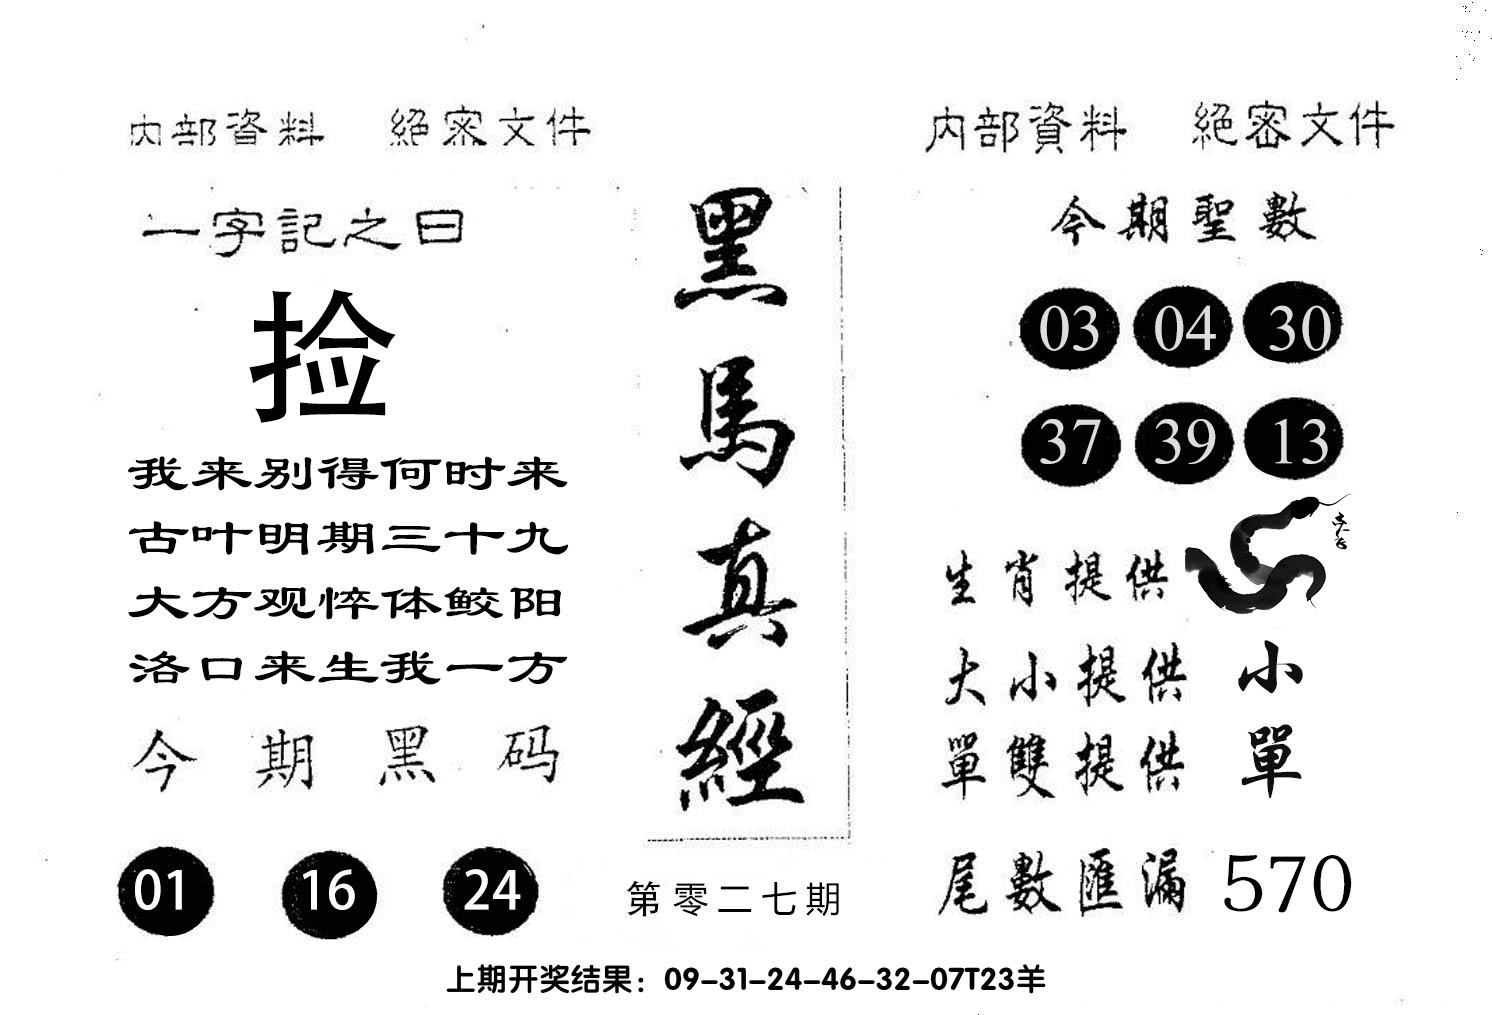 内部資料 絕密文件
一字記之曰
捡
我来别得何时来
古叶明期三十九
大方观悴体鲛阳
洛口来生我一方
今期黑码
01 16 24
黑馬真經
第零二七期
内部資料 絕密文件
今期聖數
03 04 30
37 39 13
生肖提供
大小提供 小
單雙提供 單
尾數匯漏 570
上期开奖结果：09-31-24-46-32-07T23羊